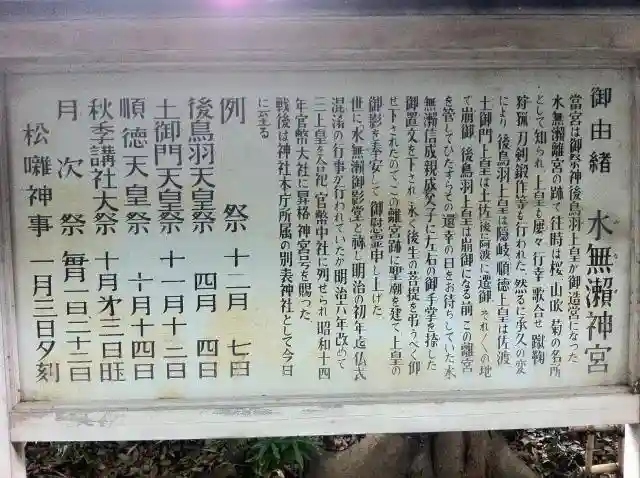 御由緒　水無瀬神宮
当宮は御祭神後鳥羽上皇が御造営になった
水無瀬離宮の跡で往時は桜・山吹・菊の名所
として知られ、上皇も屡々行幸、歌合せ、蹴鞠
狩猟、刀剣鍛作等も行われた。然るに承久の変
により、後鳥羽上皇は隠岐、順徳上皇は佐渡
土御門上皇は土佐後に阿波に遷御、それぐの地
て崩御、後鳥羽上皇は崩御になる前、この離宮
を管してひたすら 還幸の日をお待ちしていた水
無瀬信成親成父子に左右の御手掌を捺した
御置文を下され、永く後生の菩提を弔うべく仰
せ下されたのでこの離宮跡に聖廟を建て上皇の
御影を奉安して御慰霊申し上げた。
世に水無瀬御影堂と称し明治の初年迄仏式
混淆の行事が行われていたが明治六年改めて
三上皇を合祀、官幣中社に列せられ昭和十四
年官幣大社に昇格、神宮号を賜った
戦後は神社本庁所属の別表神社として今日
に至る
例祭　十二月七日
後鳥羽天皇祭　四月四日
土御門天皇祭　十一月十二日
順徳天皇祭　十月十四日
秋季講社大祭　十月第三日旺
月次祭　毎月一日二十二日
松囃神事　一月三日夕刻